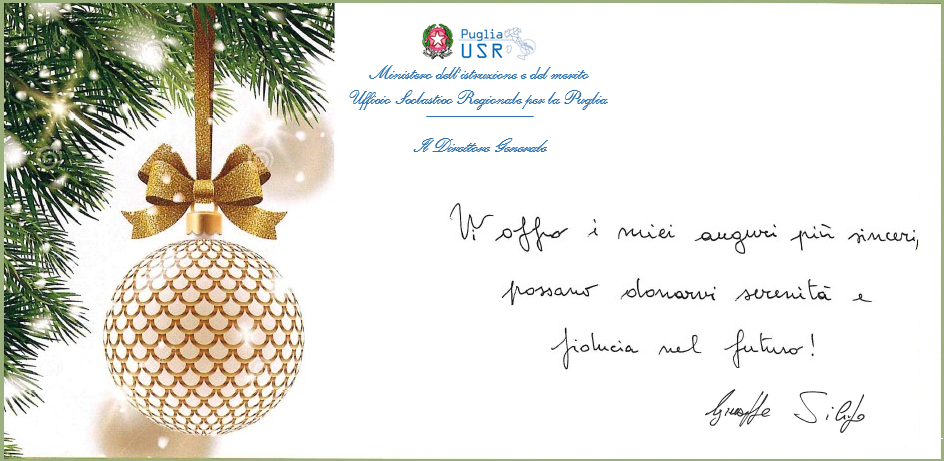 Puglia
USR
Ministero dell'istruzione e del merito
Ufficio Scolastico Regionale per la Puglia
Il Direttore Generale
Vi offro i miei auguri più sinceri,
possano donarvi serenità e
fiducia nel futuro!
Giuseppe Silipo